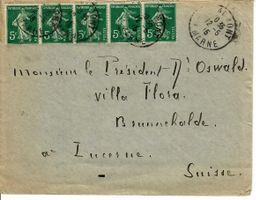 5c 5c 5c 5c 5c
Monsieur le Président D'Oswald.
Villa Flora.
Brunnehalde.
à Lucerne.
Suisse.